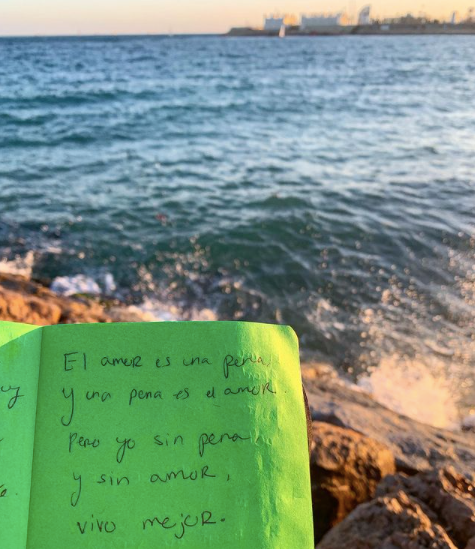 El amor es una pena
y una pena es el amor.
Pero yo sin pena
y sin amor,
vivo mejor.